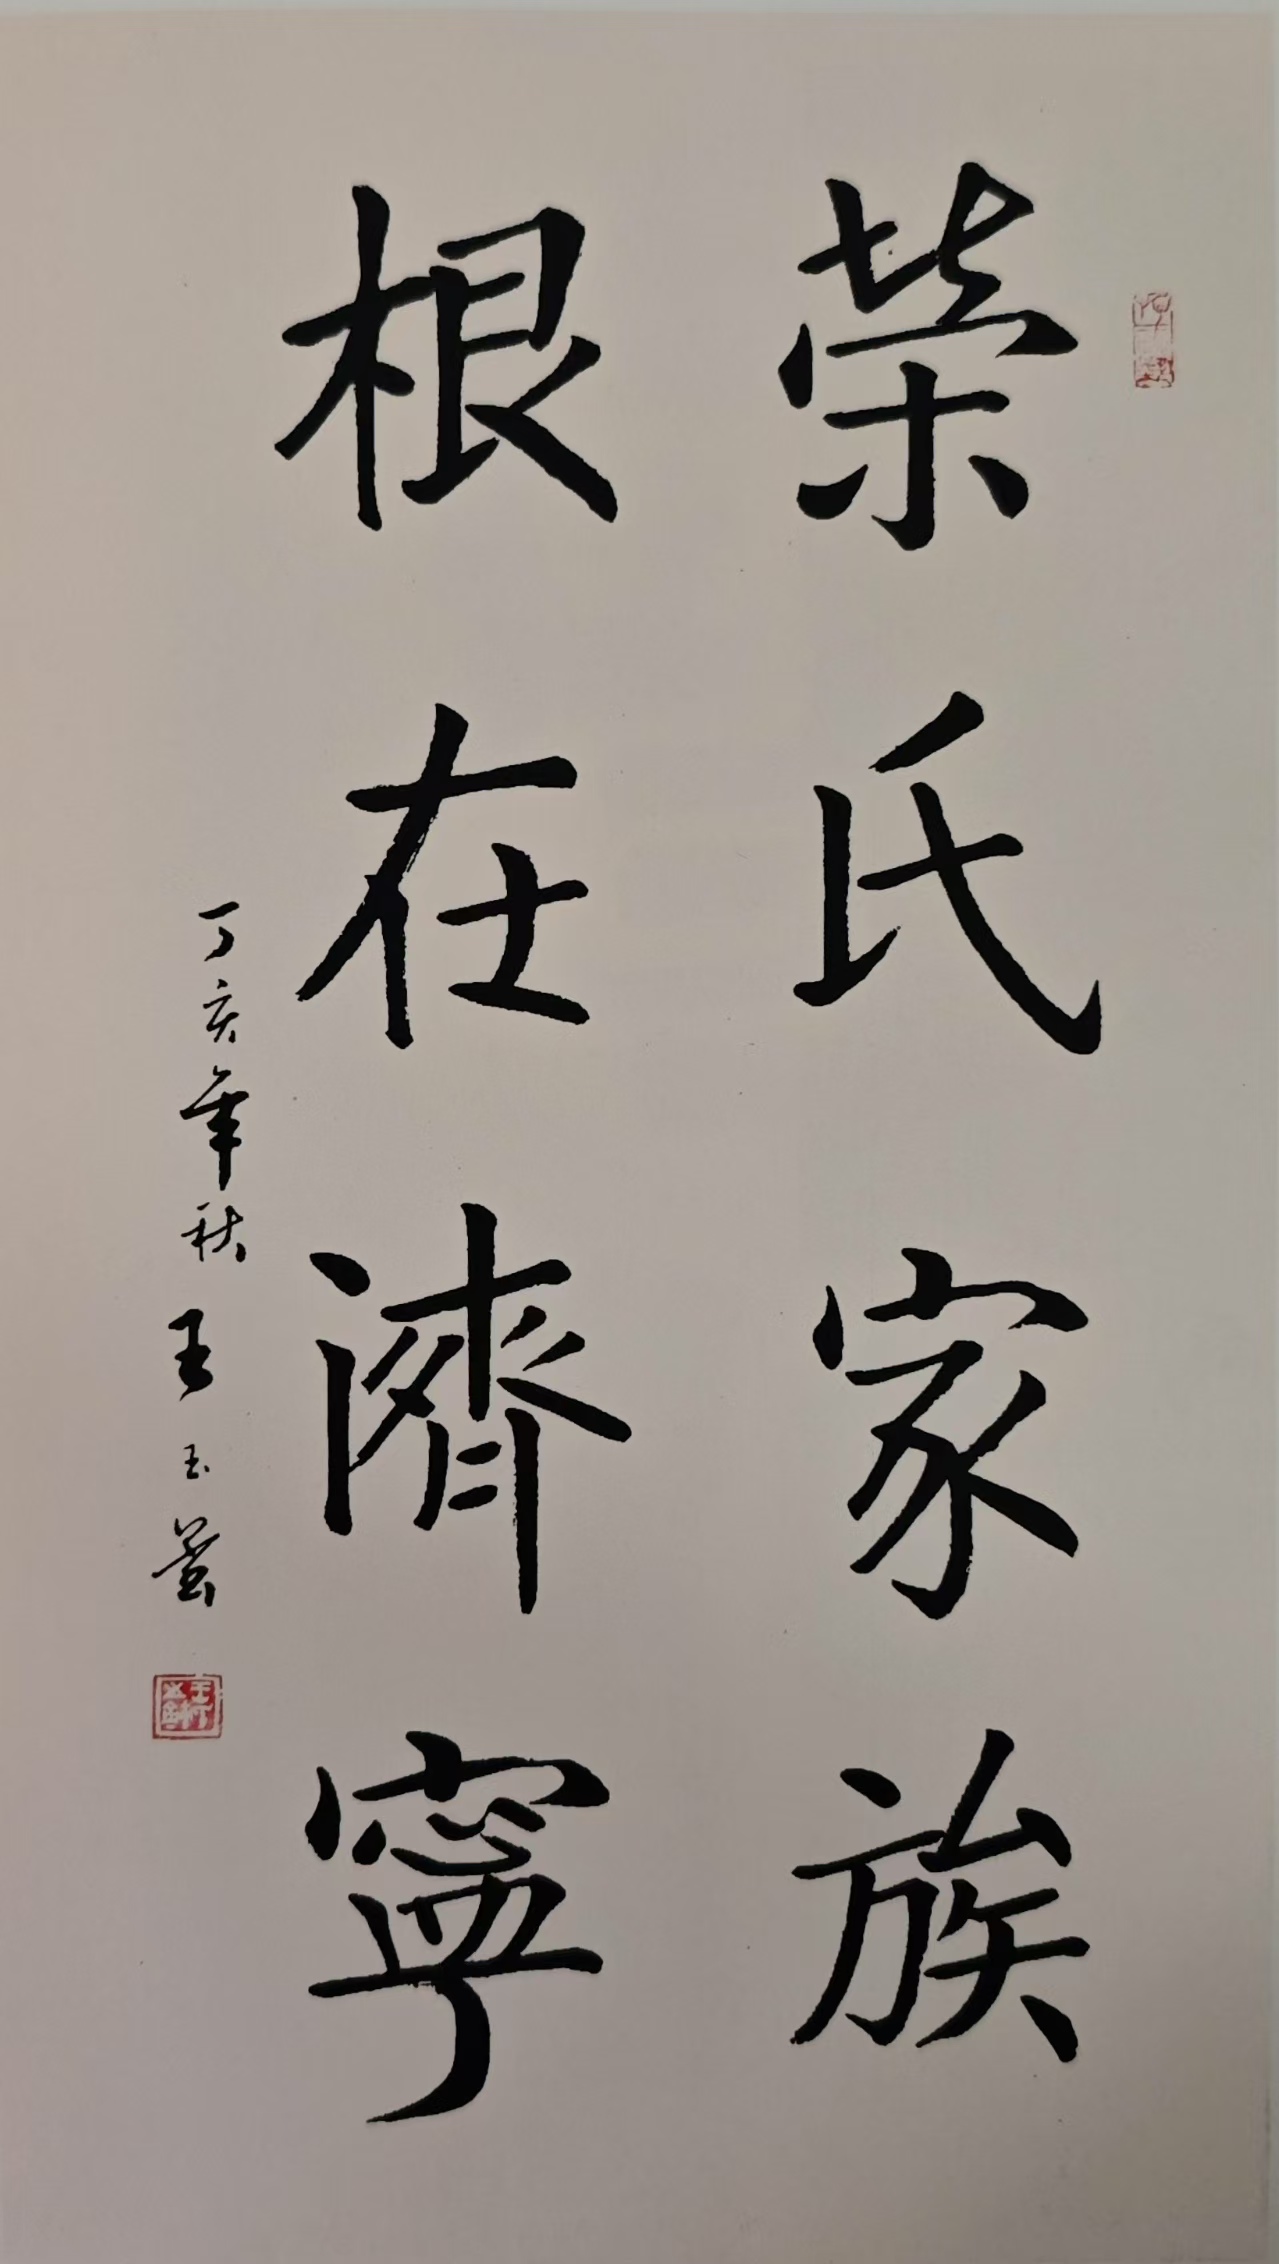 荣氏家族
根在濟寧
丁亥年秋 王玉